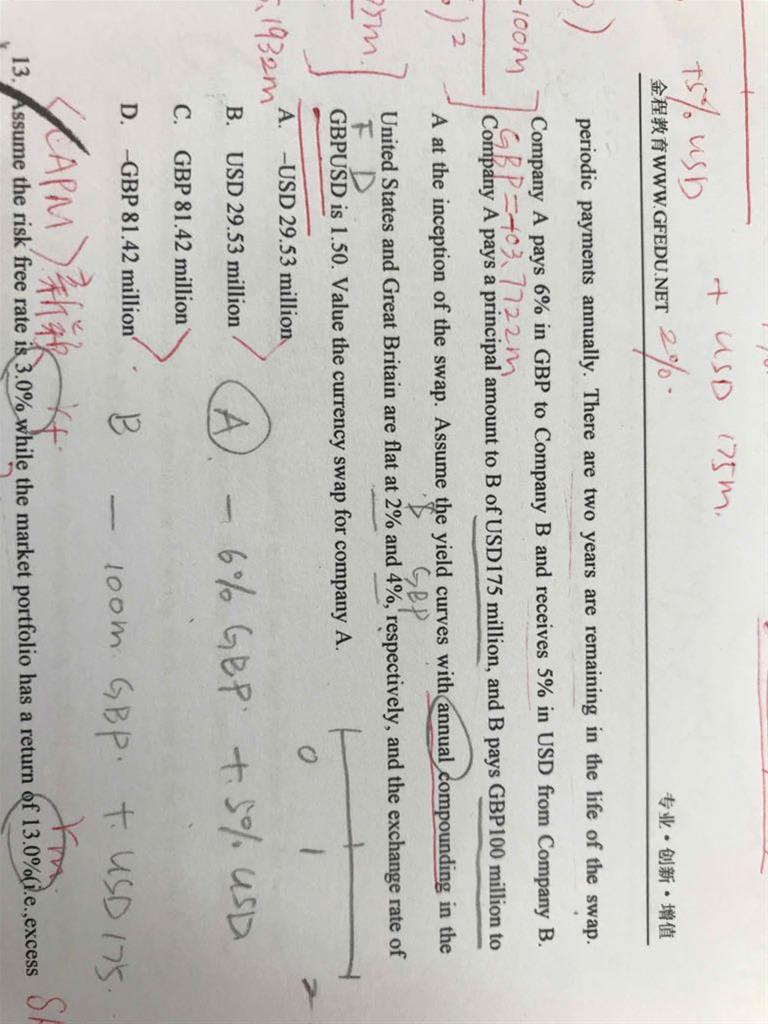 +5% USD + USD 175m.
金程教育WWW.GFEDU.NET 2%. 专业·创新·增值
periodic payments annually. There are two years are remaining in the life of the swap.
-100m
Company A pays 6% in GBP to Company B and receives 5% in USD from Company B.
GBP = -103.7722m
Company A pays a principal amount to B of USD175 million, and B pays GBP100 million to
)²
A at the inception of the swap. Assume the yield curves with annual compounding in the
GBP
United States and Great Britain are flat at 2% and 4%, respectively, and the exchange rate of
F D
GBPUSD is 1.50. Value the currency swap for company A.
A. −USD 29.53 million
0 1 2
.1932m
B. USD 29.53 million
A - 6% GBP + 5% USD
C. GBP 81.42 million
D. −GBP 81.42 million
B - 100m GBP. + USD 175.
<CAPM> rf rm
13. Assume the risk free rate is 3.0% while the market portfolio has a return of 13.0%(i.e.,excess